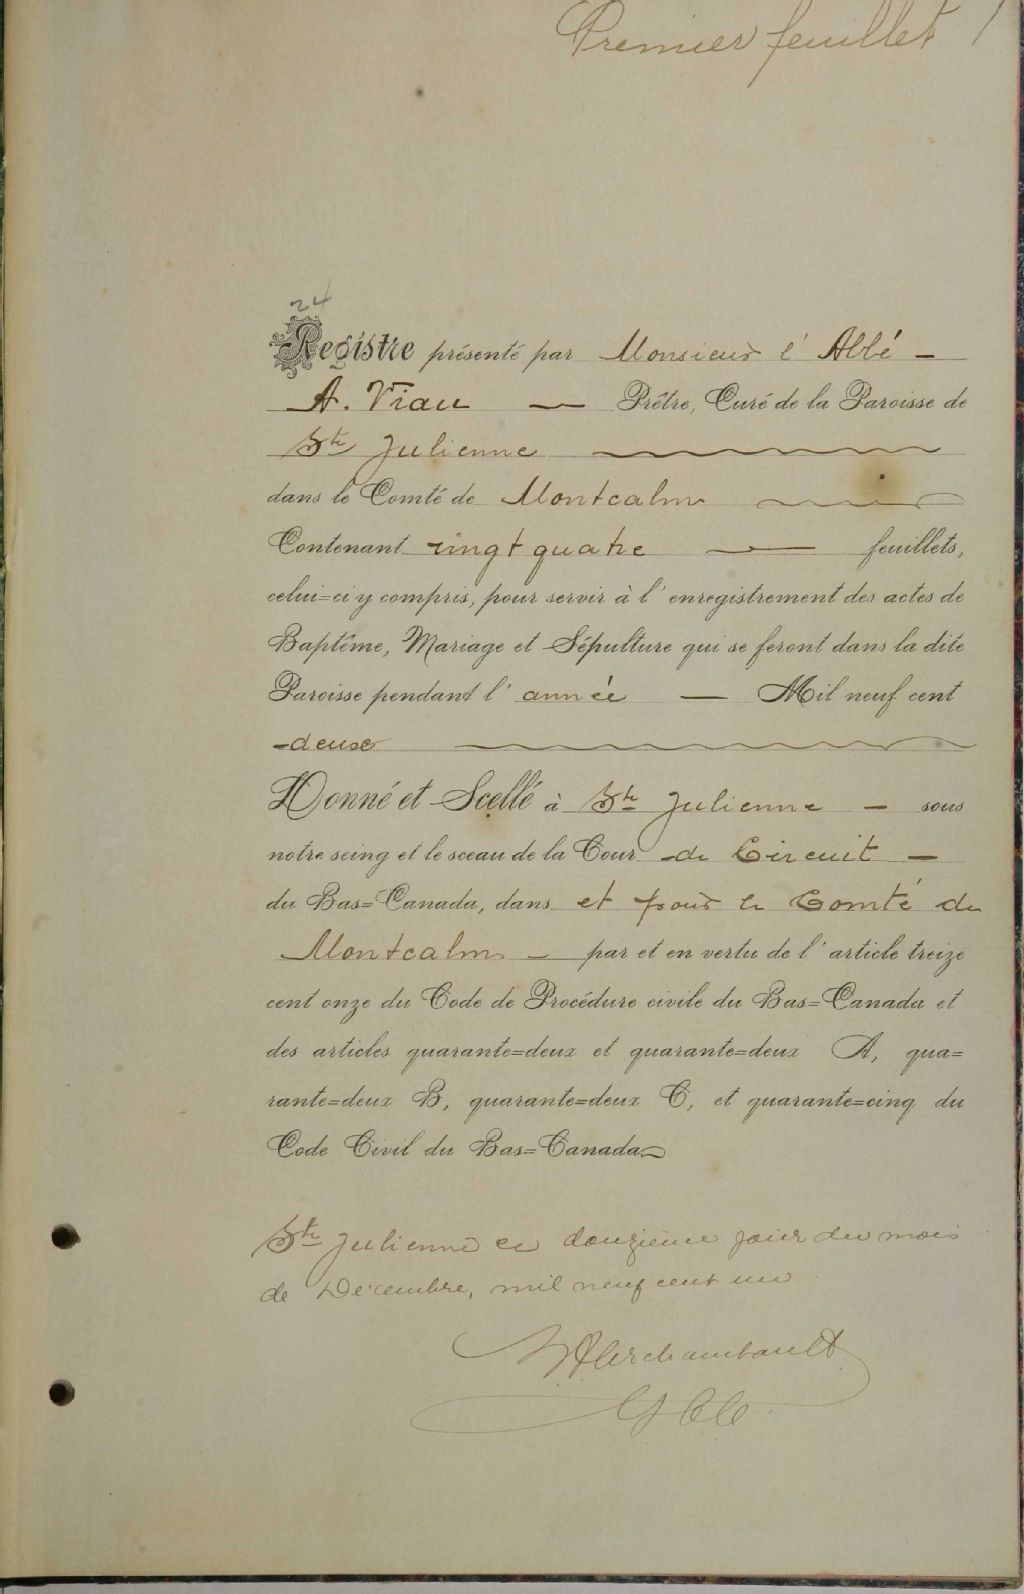 Premier feuillet 1
24
Registre présenté par Monsieur l'Abbé —
A. Viau — Prêtre, Curé de la Paroisse de
Ste Julienne
dans le Comté de Montcalm
Contenant vingt quatre — feuillets,
celui=ci y compris, pour servir à l'enregistrement des actes de
Baptême, Mariage et Sépulture qui se feront dans la dite
Paroisse pendant l'année — Mil neuf cent
deux
Donné et Scellé à Ste Julienne — sous
notre seing et le sceau de la Cour de Circuit —
du Bas=Canada, dans et pour le Comté de
Montcalm — par et en vertu de l'article treize
cent onze du Code de Procédure civile du Bas=Canada et
des articles quarante=deux et quarante=deux A, qua=
rante=deux B, quarante=deux C, et quarante=cinq du
Code Civil du Bas=Canada
Ste Julienne ce douzième jour du mois
de Décembre, mil neuf cent un
Archambault